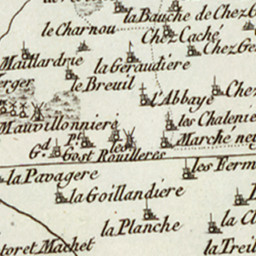 la Bauche de Chez G
le Charnou
Chez Caché
Chez Ge
Maillardrie
la Geraudiere
erger
le Breuil
l'Abbaye
Chez
les Chalenie
Mauvillonniere
Marché neu
Gd. P. Gost
les Rouilleres
les Ferm
la Pavagere
la Goillandiere
la Planche
la Cl
toret Machet
la Treil